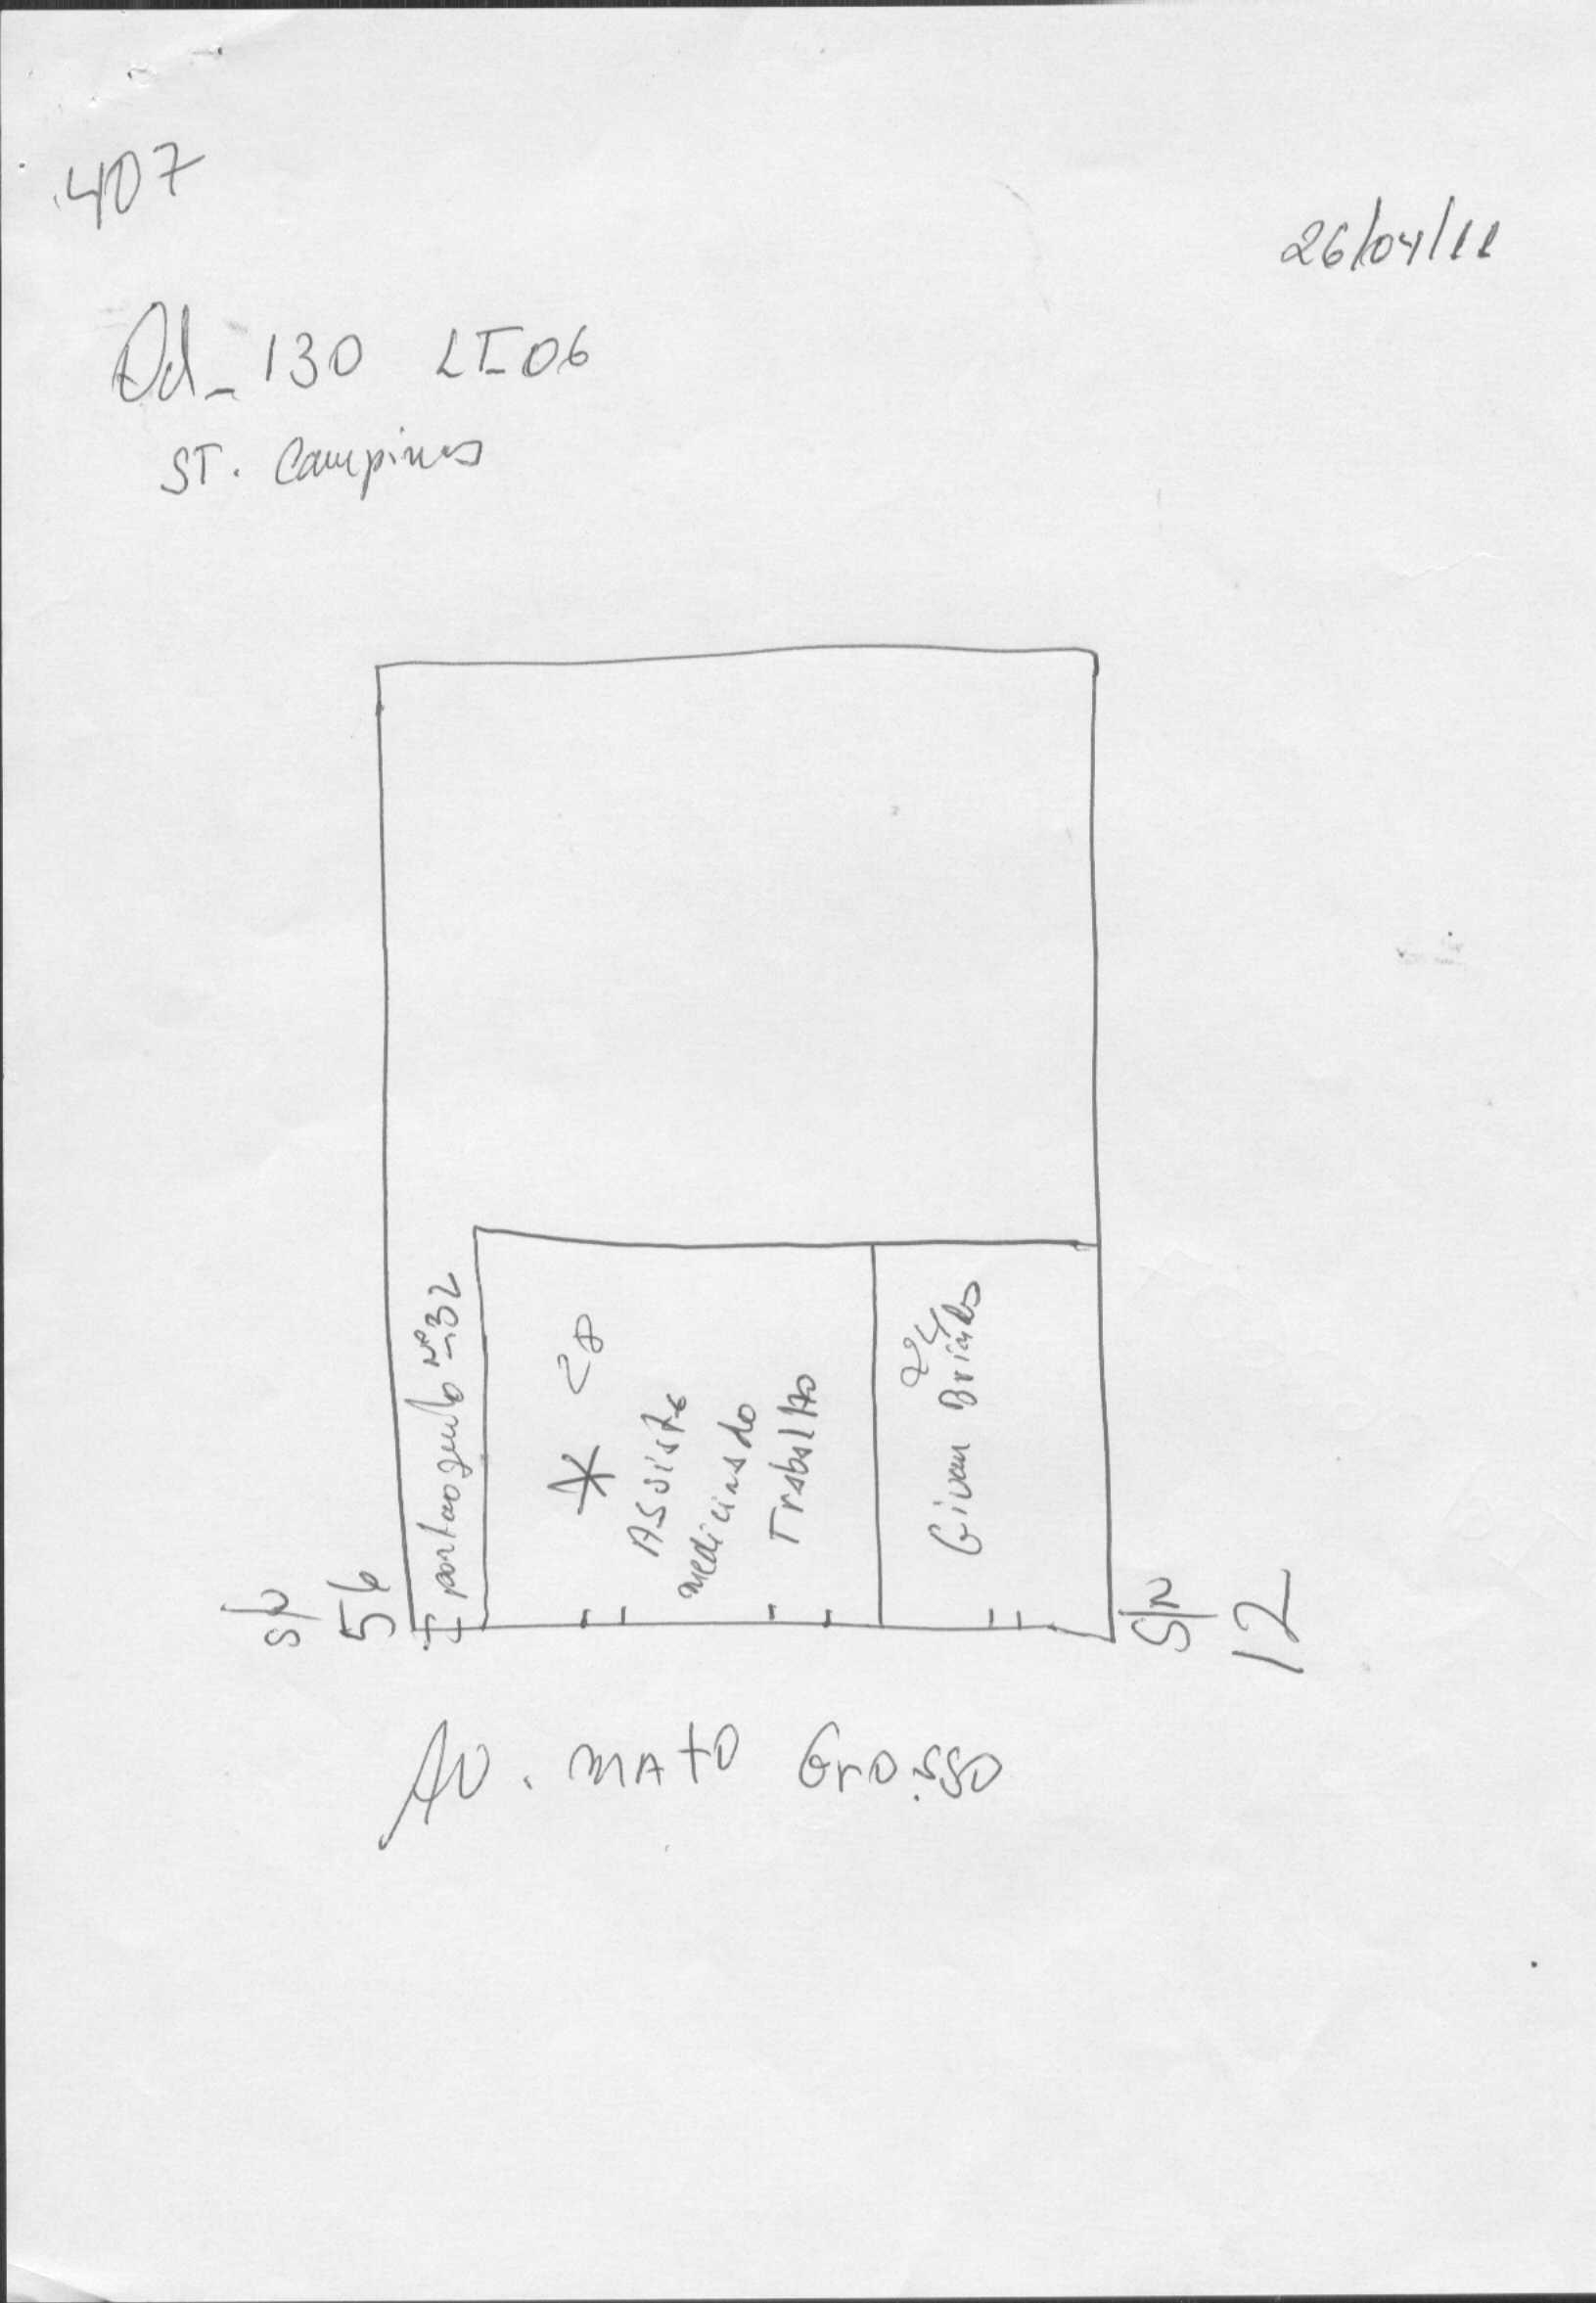 407
26/04/11
Qd_ 130 LT-06
ST. Campinas
S/N
56
nº 32
* 28
Assiste
medicina do
Trabalho
24
Givan Brindes
S/N
12
Av. MATO GROSSO